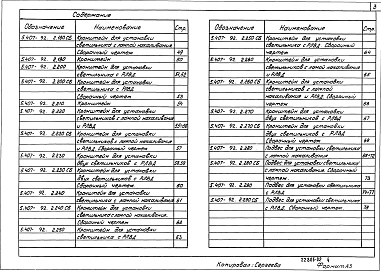 3
Содержание
Обозначение Наименование Стр
5.407-92. 2.180СБ Кронштейн для установки
светильника с лампой накаливания
Сборочный чертеж 49
5.407-92. 2.190 Кронштейн 50
5.407-92. 2.200 Кронштейн для установки
светильника с РЛВД
5.407-92. 2.200СБ Кронштейн для установки
светильника с РЛВД
Сборочный чертеж 53
5.407-92. 2.210 Кронштейн 54
5.407-92. 2.220 Кронштейн для установки
светильников с лампой накаливания
и РЛВД
5.407-92. 2.220СБ Кронштейн для установки
светильников с лампой накаливания
и РЛВД Сборочный чертеж 57
5.407-92. 2.230 Кронштейн для установки
двух светильников с РЛВД
5.407-92. 2.230СБ Кронштейн для установки
двух светильников с РЛВД
Сборочный чертеж 60
5.407-92. 2.240 Кронштейн для установки
светильника с лампой накаливания 61
5.407-92. 2.240СБ Кронштейн для установки
светильника с лампой накаливания
Сборочный чертеж
5.407-92. 2.250 Кронштейн для установки
светильника с РЛВД 63
Обозначение Наименование Стр
5.407-92. 2.250СБ Кронштейн для установки
светильника с РЛВД Сборочный
чертеж 64
5.407-92. 2.260 Кронштейн для установки
светильников с лампой накаливания
и РЛВД 65
5.407-92. 2.260СБ Кронштейн для установки
светильников с лампой
накаливания и РЛВД Сборочный
чертеж 66
5.407-92. 2.270 Кронштейн для установки
двух светильников с РЛВД 67
5.407-92. 2.270СБ Кронштейн для установки
двух светильников с РЛВД
Сборочный чертеж
5.407-92. 2.280 Подвес для установки светильника
с лампой накаливания
5.407-92. 2.280СБ Подвес для установки светильника
с лампой накаливания Сборочный
чертеж 73
5.407-92. 2.290 Подвес для установки светильника
с РЛВД
5.407-92. 2.290СБ Подвес для установки светильника
с РЛВД Сборочный чертеж 78
4
Копировал: Сергеева Формат А3